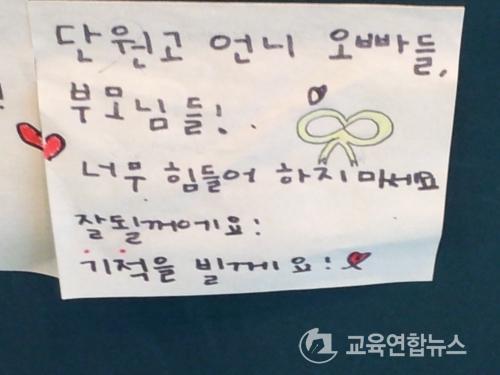 단원고 언니 오빠들,
부모님들!
너무 힘들어 하지마세요
잘될꺼에요!
기적을 빌께요!
교육연합뉴스